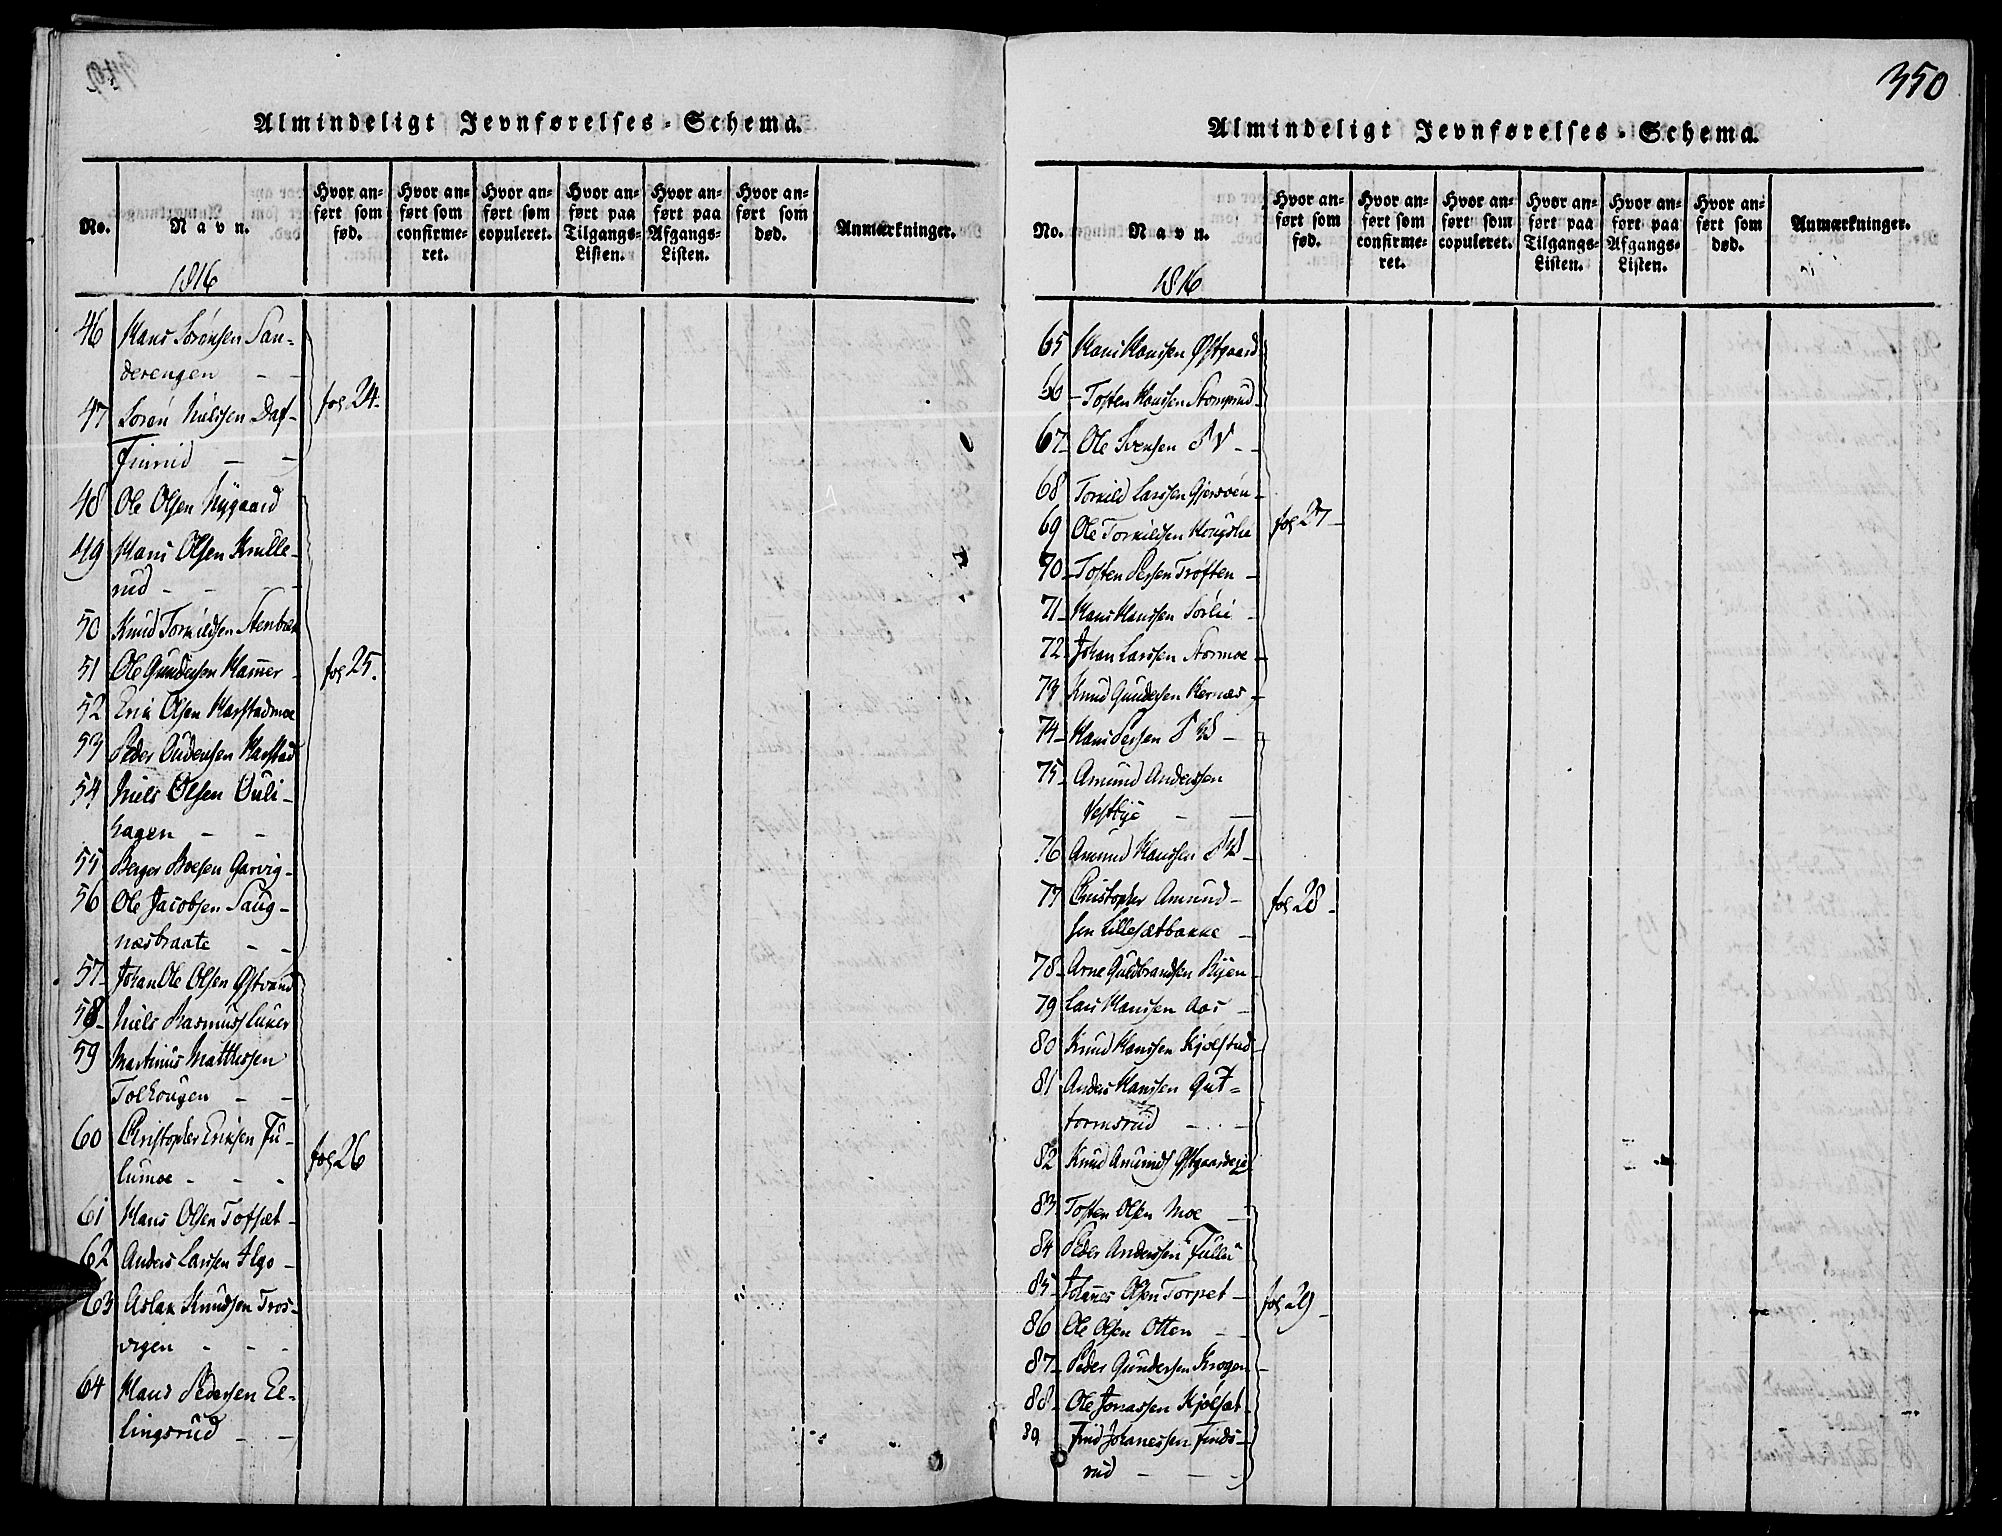 Almindeligt Jevnførelses-Schema.
No.
Navn.
Hvor an-
ført som
fød.
Hvor an-
ført som
confirme-
ret.
Hvor an-
ført som
copuleret.
Hvor an-
ført paa
Tilgangs-
Listen.
Hvor an-
ført paa
Afgangs-
Listen.
Hvor an-
ført som
død.
Anmærkninger.
1816
46 Hans Sörensen San-
derengen - -
47 Sören Nielsen Daf-
finrud - -
fol 24.
48 Ole Olsen Nÿgaard
49 Hans Olsen Knulle-
rud - - -
50 Knud Torkildsen Stenbæk
51 Ole Gundersen Hamer -
fol 25.
52 Erik Olsen Harstadmoe
53 Peder Audensen Harstad
54 Niels Olsen Duli-
hagen - -
55 Berger Boesen Garvig-
56 Ole Jacobsen Saug-
næsbraate - -
57- Johan Ole Olsen Østvand
58- Niels Rasmuss
59 Martinus Mathissen
Tolhougen - -
60 Christopher Eriksen Fu-
lumoe - - -
fol 26
61 Hans Olsen Tofsæt -
62 Anders Larssen Algo -
63 Aslak Knudsen Tros-
vigen - - -
64 Hans Pedersen El-
lingsrud - -
350
Almindeligt Jevnførelses-Schema.
No.
Navn.
Hvor an-
ført som
fød.
Hvor an-
ført som
confirme-
ret.
Hvor an-
ført som
copuleret.
Hvor an-
ført paa
Tilgangs-
Listen.
Hvor an-
ført paa
Afgangs-
Listen.
Hvor an-
ført som
død.
Anmærkninger.
1816
65 Hans Hanssen Østgaard
66 - Tosten Hanssen Stomprud -
67- Ole Svensen - -
68 Torkild Larssen Gjersöen -
69 Ole Torkildsen Kongslie
fol 27 -
70- Tosten Persen Tröften -
71- Hans Hanssen Sörlie -
72- Johan Larssen Stormoe -
73 Knud Gundersen Hernæs -
74- Hans Persen -
75- Amund Anderssen
Vestbÿe - -
76 Amund Hanssen
77 Christopher Amund-
sen Lillesætbakke -
fol 28 -
78- Arne Guldbrandsen Bÿen -
79 Lars Hanssen Aas -
80 Knud Hanssen Kjölstad -
81 Anders Hanssen Gut-
tormsrud - -
82 Knud Amunds Østgaardeje
83 Tosten Olsen Moe -
84 Peder Anderssen Fullu
85- Johannes Olsen Torpet -
fol 29 -
86 Ole Olsen Otten - -
87- Peder Gundersen Krogen -
88- Ole Jonassen Kjölsæt -
89 Find Johanessen Finds-
rud - - -